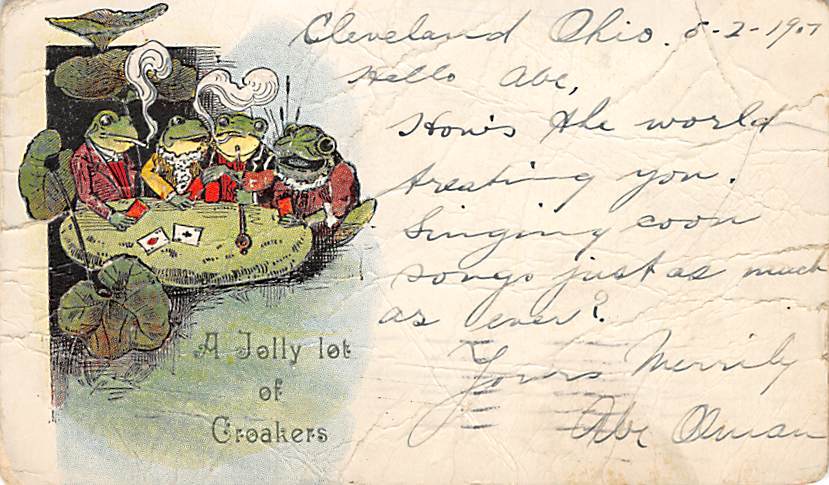 Cleveland Ohio. 5-2-1907
Hello Abe,
How's the world
treating you.
Singing coon
songs just as much
as ever?
Yours Merrily
Abe Olman
A Jolly lot
of
Croakers